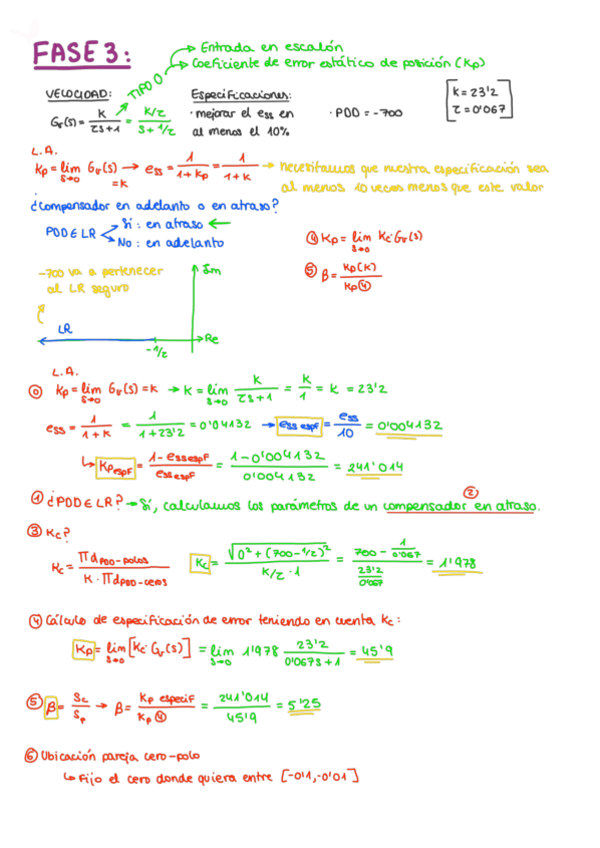 FASE 3:
Entrada en escalón
Coeficiente de error estático de posición (Kp)
TIPO 0
VELOCIDAD:
Especificaciones:
Gv(s) = K / τs+1 = K/τ / s+1/τ
· mejorar el ess en
al menos el 10%
· PDD = -700
K = 23'2
τ = 0'067
L.A.
Kp = lim s→0 Gv(s) = K → ess = 1 / 1+Kp = 1 / 1+K → necesitamos que nuestra especificación sea
al menos 10 veces menos que este valor
¿compensador en adelanto o en atraso?
PDD ∈ LR
Sí: en atraso ←
No: en adelanto
④ Kp = lim s→0 Kc·Gv(s)
⑤ β = Kp(K) / Kp④
-700 va a pertenecer
al LR seguro
Im
LR
Re
-1/τ
L.A.
⓪ Kp = lim s→0 Gv(s) = K → K = lim s→0 K / τs+1 = K / 1 = K = 23'2
ess = 1 / 1+K = 1 / 1+23'2 = 0'04132 → ess espf = ess / 10 = 0'004132
↳ Kp espf = 1 - ess espf / ess espf = 1-0'004132 / 0'004132 = 241'014
① ¿PDD ∈ LR? → Sí, calculamos los parámetros de un compensador en atraso.
②
③ Kc?
Kc = Πd PDD-polos / K·Πd PDD-ceros
Kc = √0²+(700-1/τ)² / K/τ · 1 = 700 - 1/0'067 / 23'2/0'067 = 1'978
④ Cálculo de especificación de error teniendo en cuenta Kc:
Kp = lim s→0 [Kc·Gv(s)] = lim s→0 1'978 23'2 / 0'067s+1 = 45'9
⑤ β = Sc / Sp → β = Kp especif / Kp④ = 241'014 / 45'9 = 5'25
⑥ Ubicación pareja cero-polo
↳ Fijo el cero donde quiera entre [-0'1,-0'01]